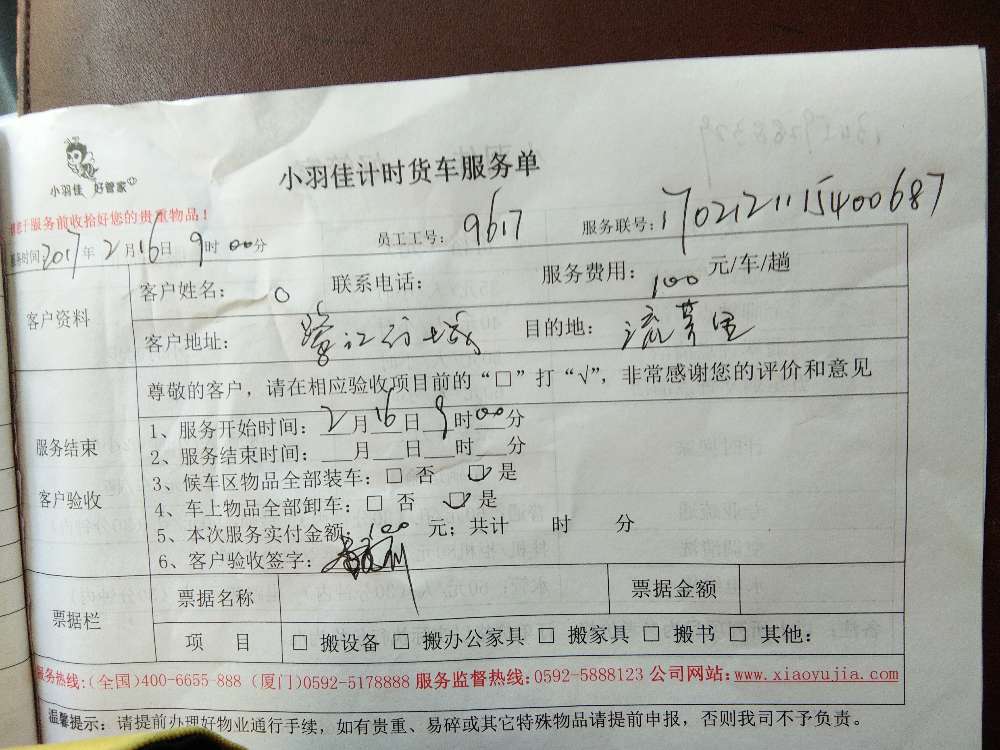 小羽佳 好管家
小羽佳计时货车服务单
于服务前收拾好您的贵重物品！
时间:2017年2月16日9时00分 员工工号:9617 服务联号:170212115400687
客户资料
客户姓名: 联系电话: 服务费用:100元/车/趟
客户地址: 目的地:
服务结束
客户验收
尊敬的客户，请在相应验收项目前的“□”打“√”，非常感谢您的评价和意见
1、服务开始时间:2月16日9时00分
2、服务结束时间:___月___日___时___分
3、候车区物品全部装车:□ 否 □ 是
4、车上物品全部卸车:□ 否 □ 是
5、本次服务实付金额:100元;共计 时 分
6、客户验收签字:
票据栏
票据名称 票据金额
项 目 □ 搬设备 □ 搬办公家具 □ 搬家具 □ 搬书 □ 其他:
服务热线:(全国)400-6655-888 (厦门)0592-5178888 服务监督热线:0592-5888123 公司网站:www.xiaoyujia.com
温馨提示:请提前办理好物业通行手续，如有贵重、易碎或其它特殊物品请提前申报，否则我司不予负责。